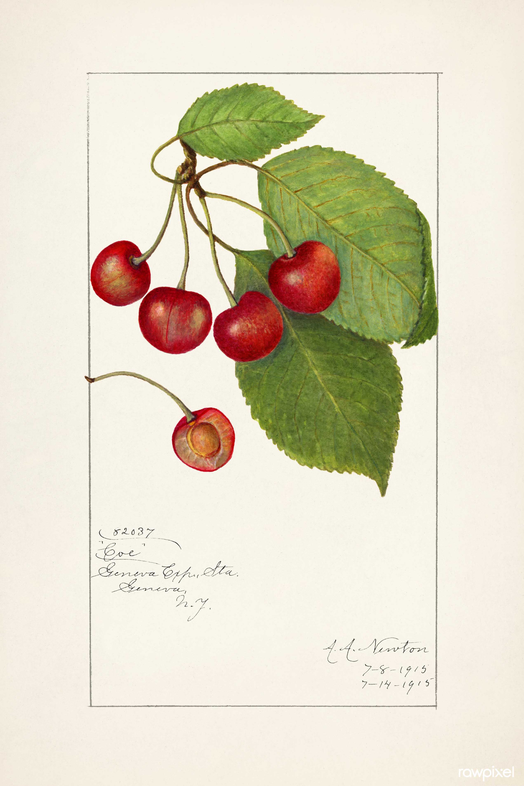 82037
"Coe"
Geneva Exp., Sta.
Geneva,
N.Y.
A.A. Newton
7-8-1915
7-14-1915
rawpixel